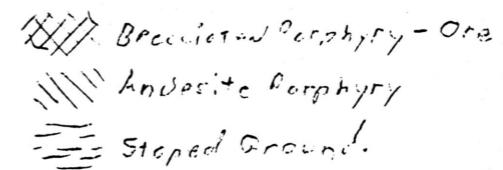 Brecciated Porphyry - Ore
Andesite Porphyry
Stoped Ground.